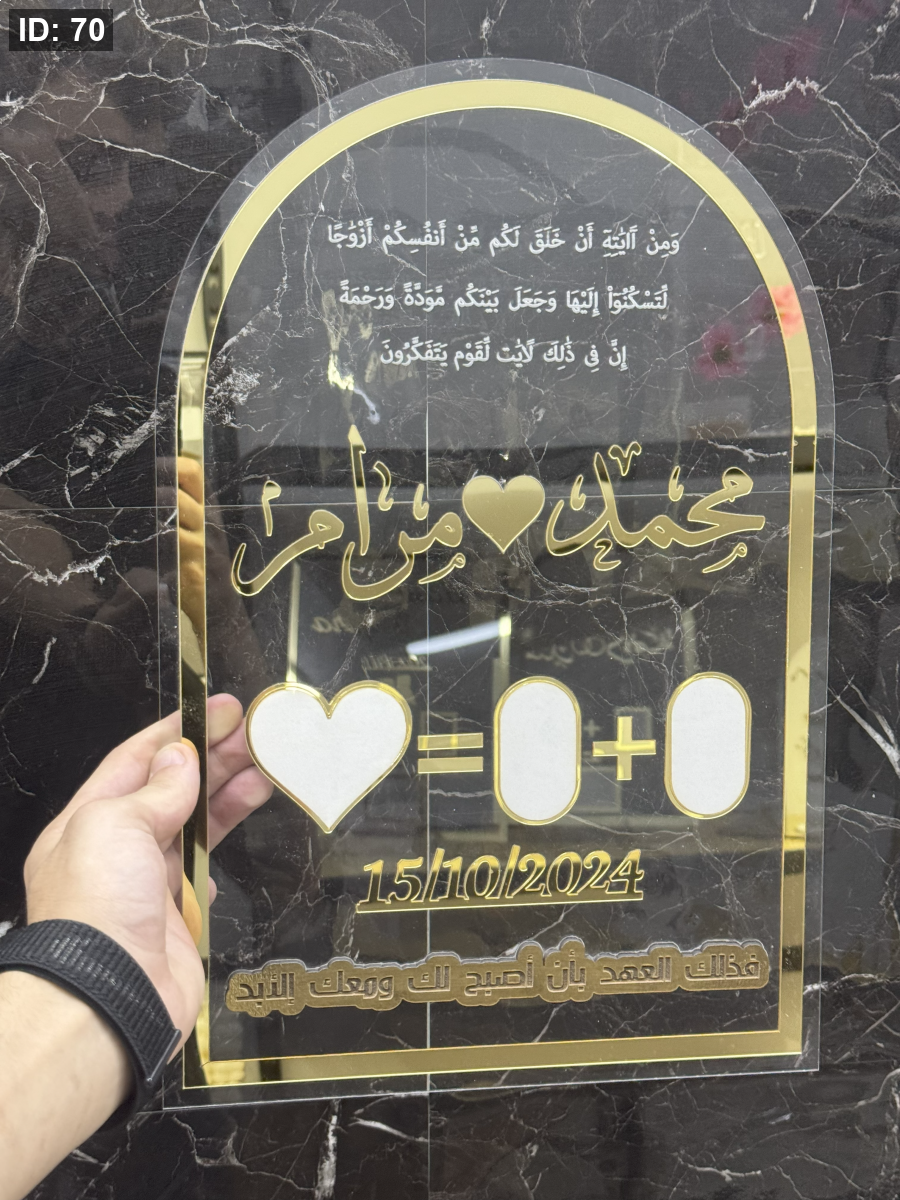 ID: 70
وَمِنْ آَايَٰتِهِۦٓ أَنْ خَلَقَ لَكُم مِّنْ أَنفُسِكُمْ أَزْوَٰجًا
لِّتَسْكُنُوٓاْ إِلَيْهَا وَجَعَلَ بَيْنَكُم مَّوَدَّةً وَرَحْمَةً
إِنَّ فِى ذَٰلِكَ لَأٓيَٰت لِّقَوْم يَتَفَكَّرُونَ
محمد ♥ مرام
0 + 0 = ♥
15/10/2024
فذلك العهد بأن أصبح لك ومعك إلأبد